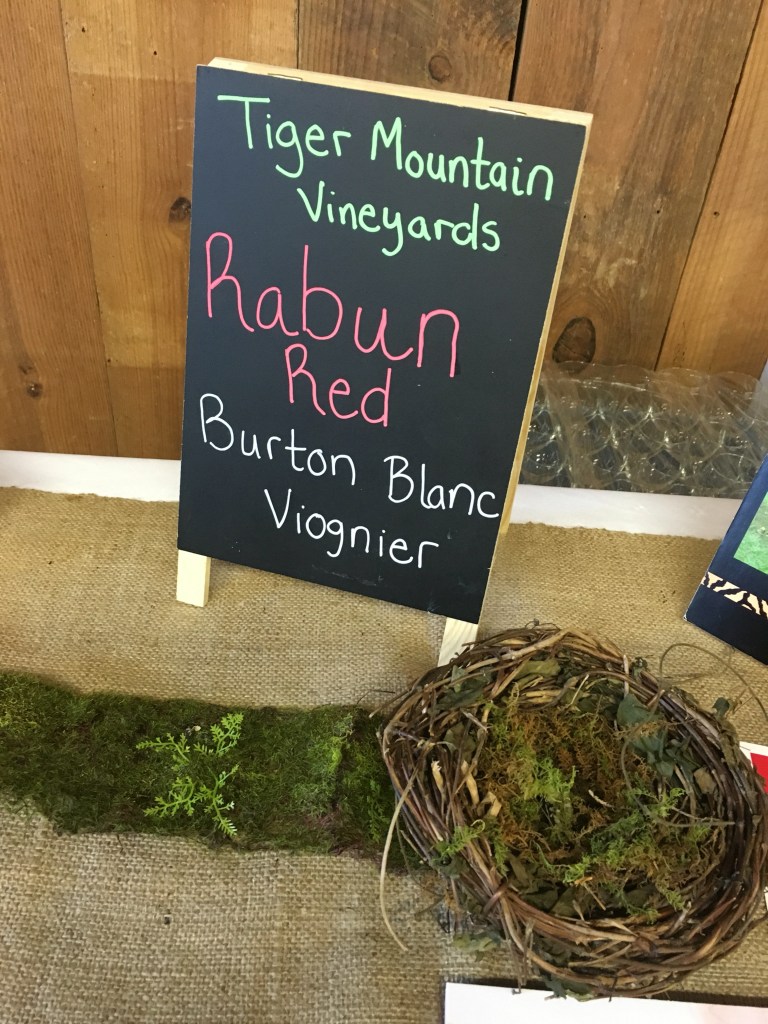 Tiger Mountain
Vineyards
Rabun
Red
Burton Blanc
Viognier